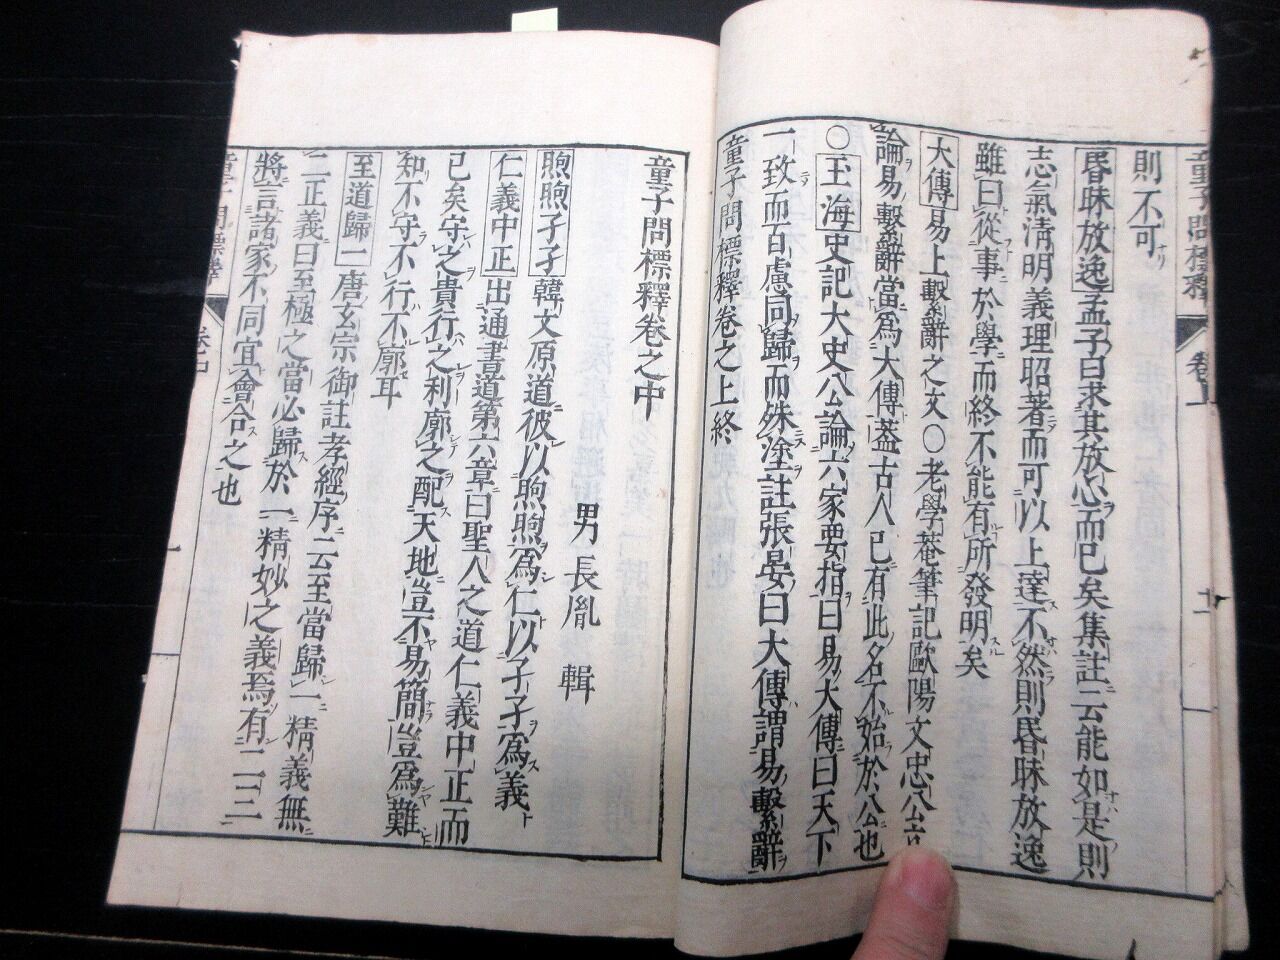 則不可
昏昧放逸孟子曰求其放心而已矣集註云能如是則
志氣清明義理昭著而可以上達不然則昏昧放逸
雖曰從事於學而終不能有所發明矣
大傳易上繫辭之文○老學菴筆記歐陽文忠公
論易繫辭當爲大傳蓋古人已有此名不始於公也
○玉海史記大史公論六家要指曰易大傳曰天下
一致而百慮同歸而殊塗註張晏曰大傳謂易繫辭
童子問標釋卷之上終
童子問標釋卷之中
男長胤輯
煦煦孑孑韓文原道彼以煦煦爲仁以孑孑爲義
仁義中正出通書道第六章曰聖人之道仁義中正而
已矣守之貴行之利廓之配天地豈不易簡豈爲難
知不守不行不廓耳
至道歸一唐玄宗御註孝經序云至當歸一精義無
二正義曰至極之當必歸於一精妙之義焉有二三
將言諸家不同宜會合之也
童子問標釋
卷上
十一
卷中
一